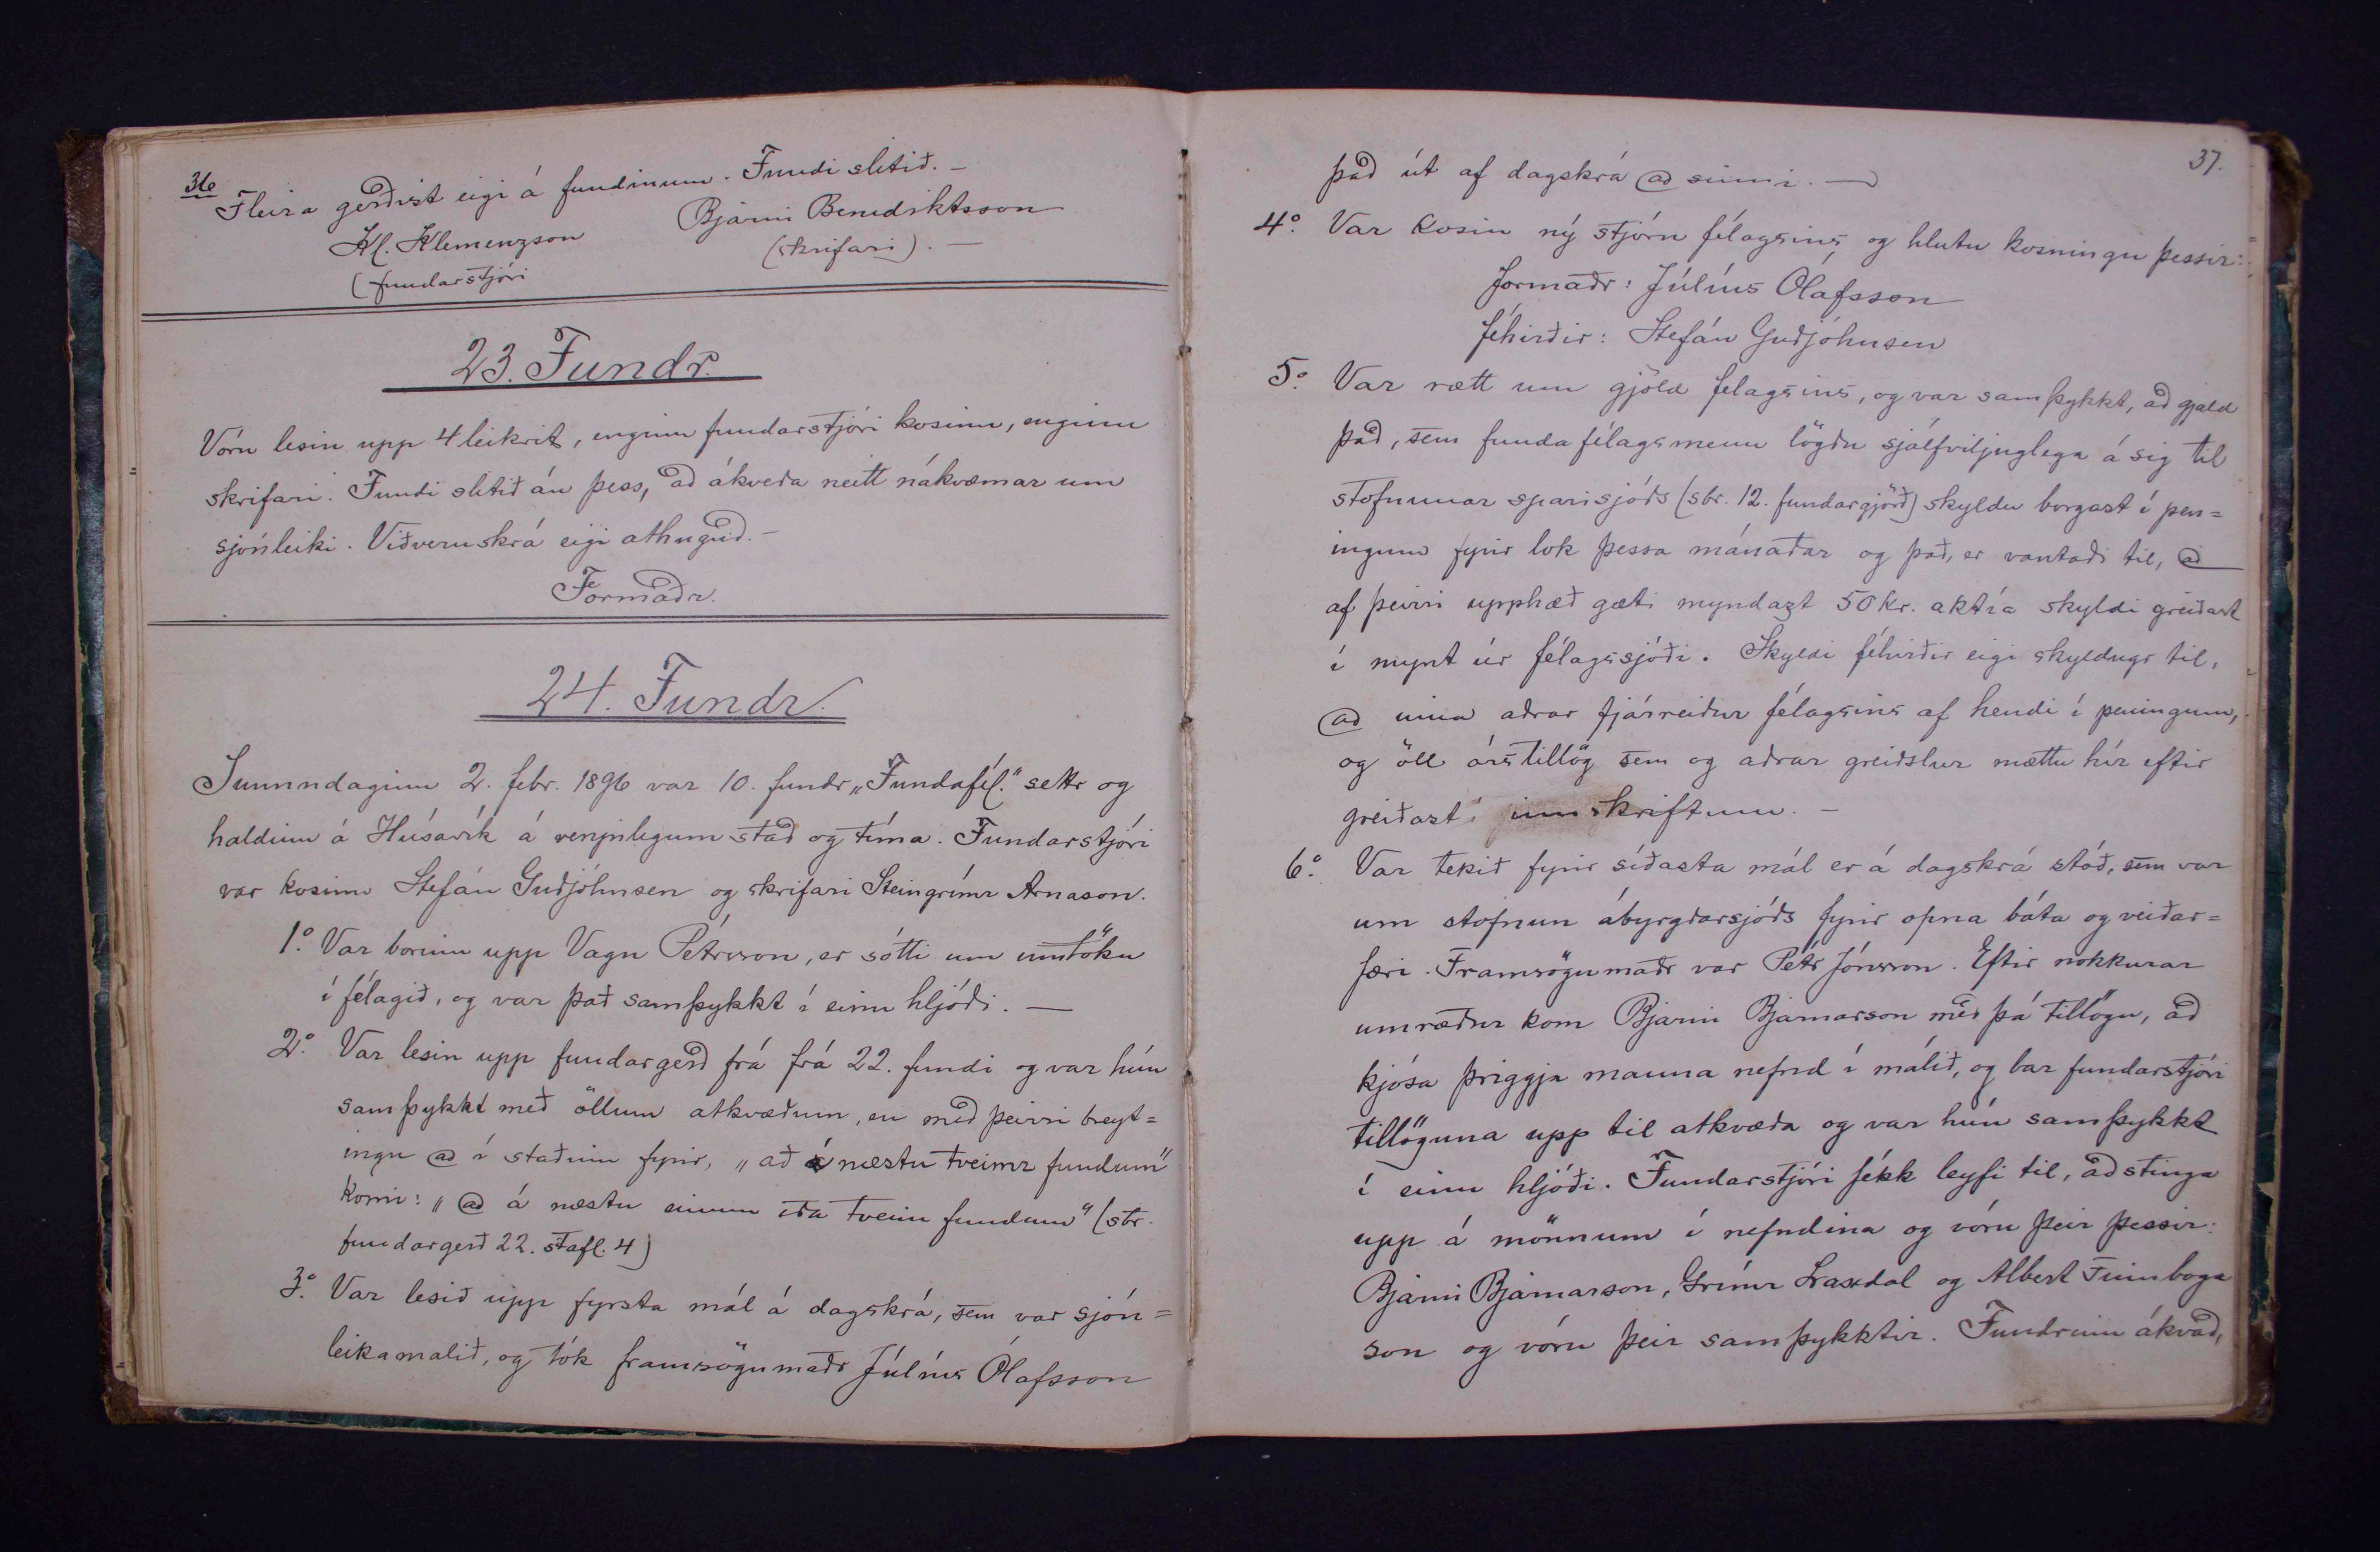 36
Fleira gerðist eigi á fundinum. Fundi slitið. –
Kl. Klemenzson Bjarni Benediktsson
(fundarstjóri (skrifari). –
23. Fundr.
Vóru lesin upp 4 leikrit, enginn fundarstjóri kosinn, enginn
skrifari. Fundi slitið án þess, að ákveða neitt nákvæmar um
sjónleiki. Viðveruskrá eigi athuguð. –
Formaðr.
24. Fundr.
Sunnudaginn 2. febr. 1896 var 10. fundr „Fundafél." settr og
haldinn á Húsavík á venjulegum stað og tíma. Fundarstjóri
var kosinn Stefán Guðjóhnsen og skrifari Steingrímr Arnason.
1.° Var borinn upp Vagn Pétrsson, er sótti um inntöku
í félagið, og var það samþykkt í einu hljóði. —
2.° Var lesin upp fundargerð frá frá 22. fundi og var hún
samþykkt með öllum atkvæðum, en með þeirri breyt=
ingu að í staðinn fyrir, „að á næstu tveimr fundum"
komi: „að á næstu einum eða tveim fundum" (sbr.
fundargerð 22. stafl. 4)
3.° Var lesið upp fyrsta mál á dagskrá, sem var sjón=
leikamalið, og tók framsögumaðr Júlíus Ólafsson
37.
það út af dagskrá að sinni. —
4.° Var kosin ný stjórn félagsins og hlutu kosningu þessir:
formaðr: Júlíus Ólafsson
féhirðir: Stefán Guðjóhnsen
5.° Var rætt um gjöld félagsins, og var samþykkt, að gjald
það, sem fundafélagsmenn lögðu sjálfviljuglega á sig til
stofnunar sparisjóðs (sbr. 12. fundargjörð) skyldu borgast í pen=
ingum fyrir lok þessa mánaðar og það, er vantaði til, að
af þeirri upphæð gæti myndazt 50 kr. aktía skyldi greiðast
í mynt úr félagssjóði. Skyldi féhirðir eigi skyldugr til,
að inna aðrar fjárreiður félagsins af hendi í peningum,
og öll árstillög sem og aðrar greiðslur mættu hér eftir
greiðast í innskriftum. –
6.° Var tekið fyrir síðasta mál er á dagskrá stóð, sem var
um stofnun ábyrgðarsjóðs fyrir opna báta og veiðar=
færi. Framsögumaðr var Pétr Jónsson. Eftir nokkurar
umræður kom Bjarni Bjarnarson með þá tillögu, að
kjósa þriggja manna nefnd í málið, og bar fundarstjóri
tillöguna upp til atkvæða og var hún samþykkt
í einu hljóði. Fundarstjóri fékk leyfi til, að stinga
upp á mönnum í nefndina og vóru þeir þessir:
Bjarni Bjarnarson, Grímr Laxdal og Albert Finnboga
son og vóru þeir samþykktir. Fundrinn ákvað,